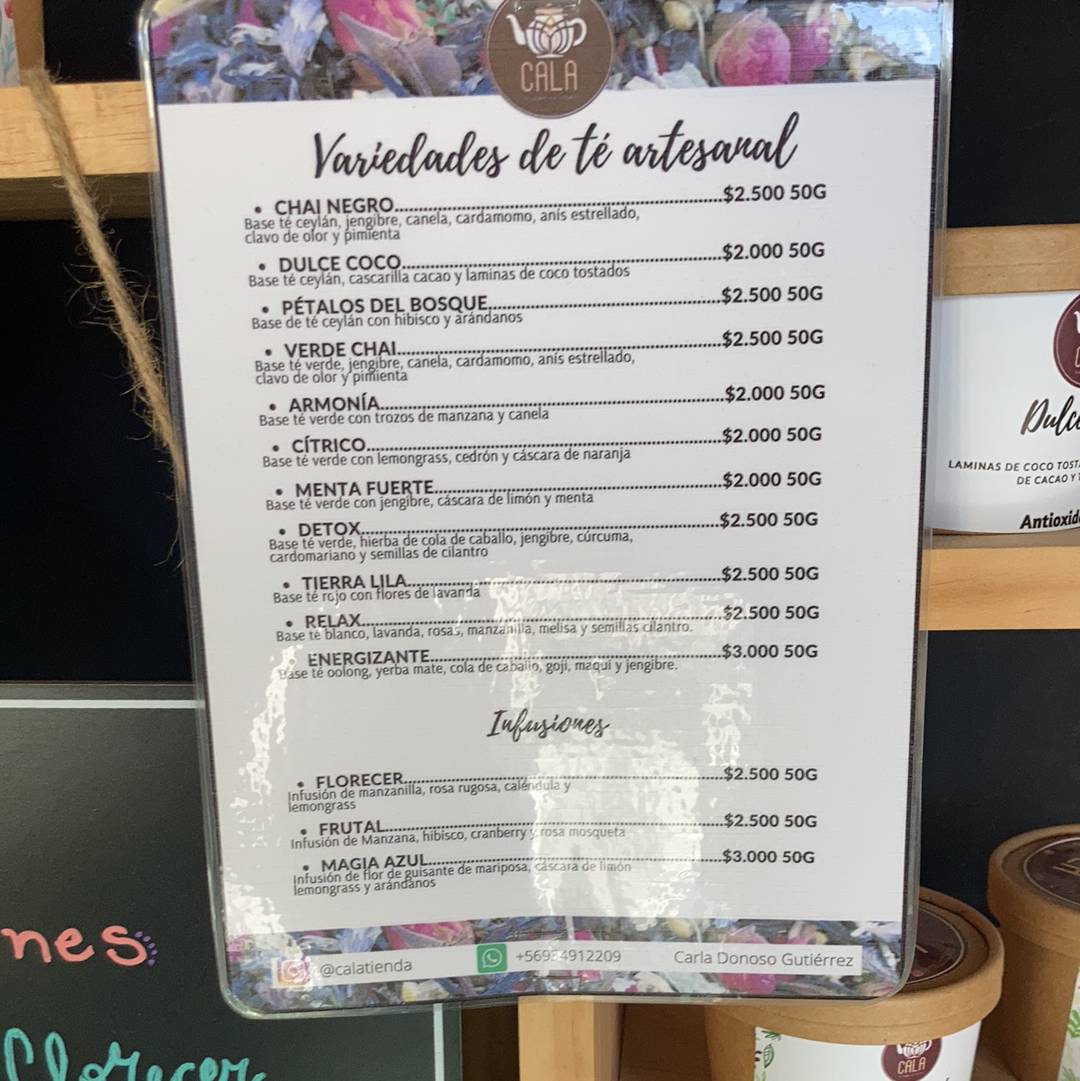 CALA
Variedades de té artesanal
• CHAI NEGRO..............$2.500 50G
Base té ceylán, jengibre, canela, cardamomo, anís estrellado,
clavo de olor y pimienta
• DULCE COCO..............$2.000 50G
Base té ceylán, cascarilla cacao y laminas de coco tostados
• PÉTALOS DEL BOSQUE..............$2.500 50G
Base de té ceylán con hibisco y arándanos
• VERDE CHAI..............$2.500 50G
Base té verde, jengibre, canela, cardamomo, anís estrellado,
clavo de olor y pimienta
• ARMONÍA..............$2.000 50G
Base té verde con trozos de manzana y canela
• CÍTRICO..............$2.000 50G
Base té verde con lemongrass, cedrón y cáscara de naranja
• MENTA FUERTE..............$2.000 50G
Base té verde con jengibre, cáscara de limón y menta
• DETOX..............$2.500 50G
Base té verde, hierba de cola de caballo, jengibre, cúrcuma,
cardomariano y semillas de cilantro
• TIERRA LILA..............$2.500 50G
Base té rojo con flores de lavanda
• RELAX..............$2.500 50G
Base té blanco, lavanda, rosas, manzanilla, melisa y semillas cilantro.
ENERGIZANTE..............$3.000 50G
Base té oolong, yerba mate, cola de caballo, goji, maqui y jengibre.
Infusiones
• FLORECER..............$2.500 50G
Infusión de manzanilla, rosa rugosa, caléndula y
lemongrass
• FRUTAL..............$2.500 50G
Infusión de Manzana, hibisco, cranberry y rosa mosqueta
• MAGIA AZUL..............$3.000 50G
Infusión de flor de guisante de mariposa, cáscara de limón
lemongrass y arándanos
@calatienda Carla Donoso Gutiérrez
LAMINAS DE COCO
DE CACAO Y
nes
Florecer
CALA